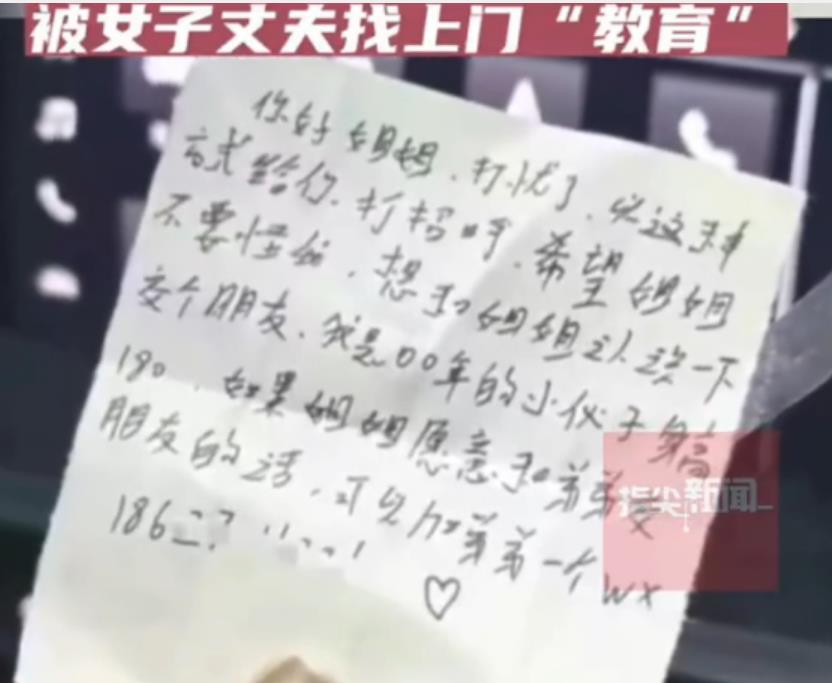 被女子丈夫找上门“教育”
你好姐姐，打扰了，以这种
方式给你打招呼，希望姐姐
不要怪我，想和姐姐认识一下
交个朋友，我是00年的小伙子身高
180，如果姐姐愿意和弟弟交
朋友的话，可以加弟弟一个wx
186
♡
指尖新闻